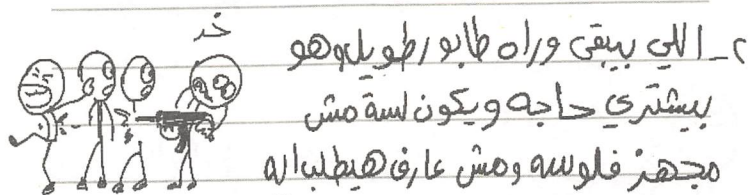 خد
٢_ اللي بيبقى وراه طابور طويل وهو
بيشتري حاجه ويكون لسة مش
مجهز فلوسه ومش عارف هيطلب ايه